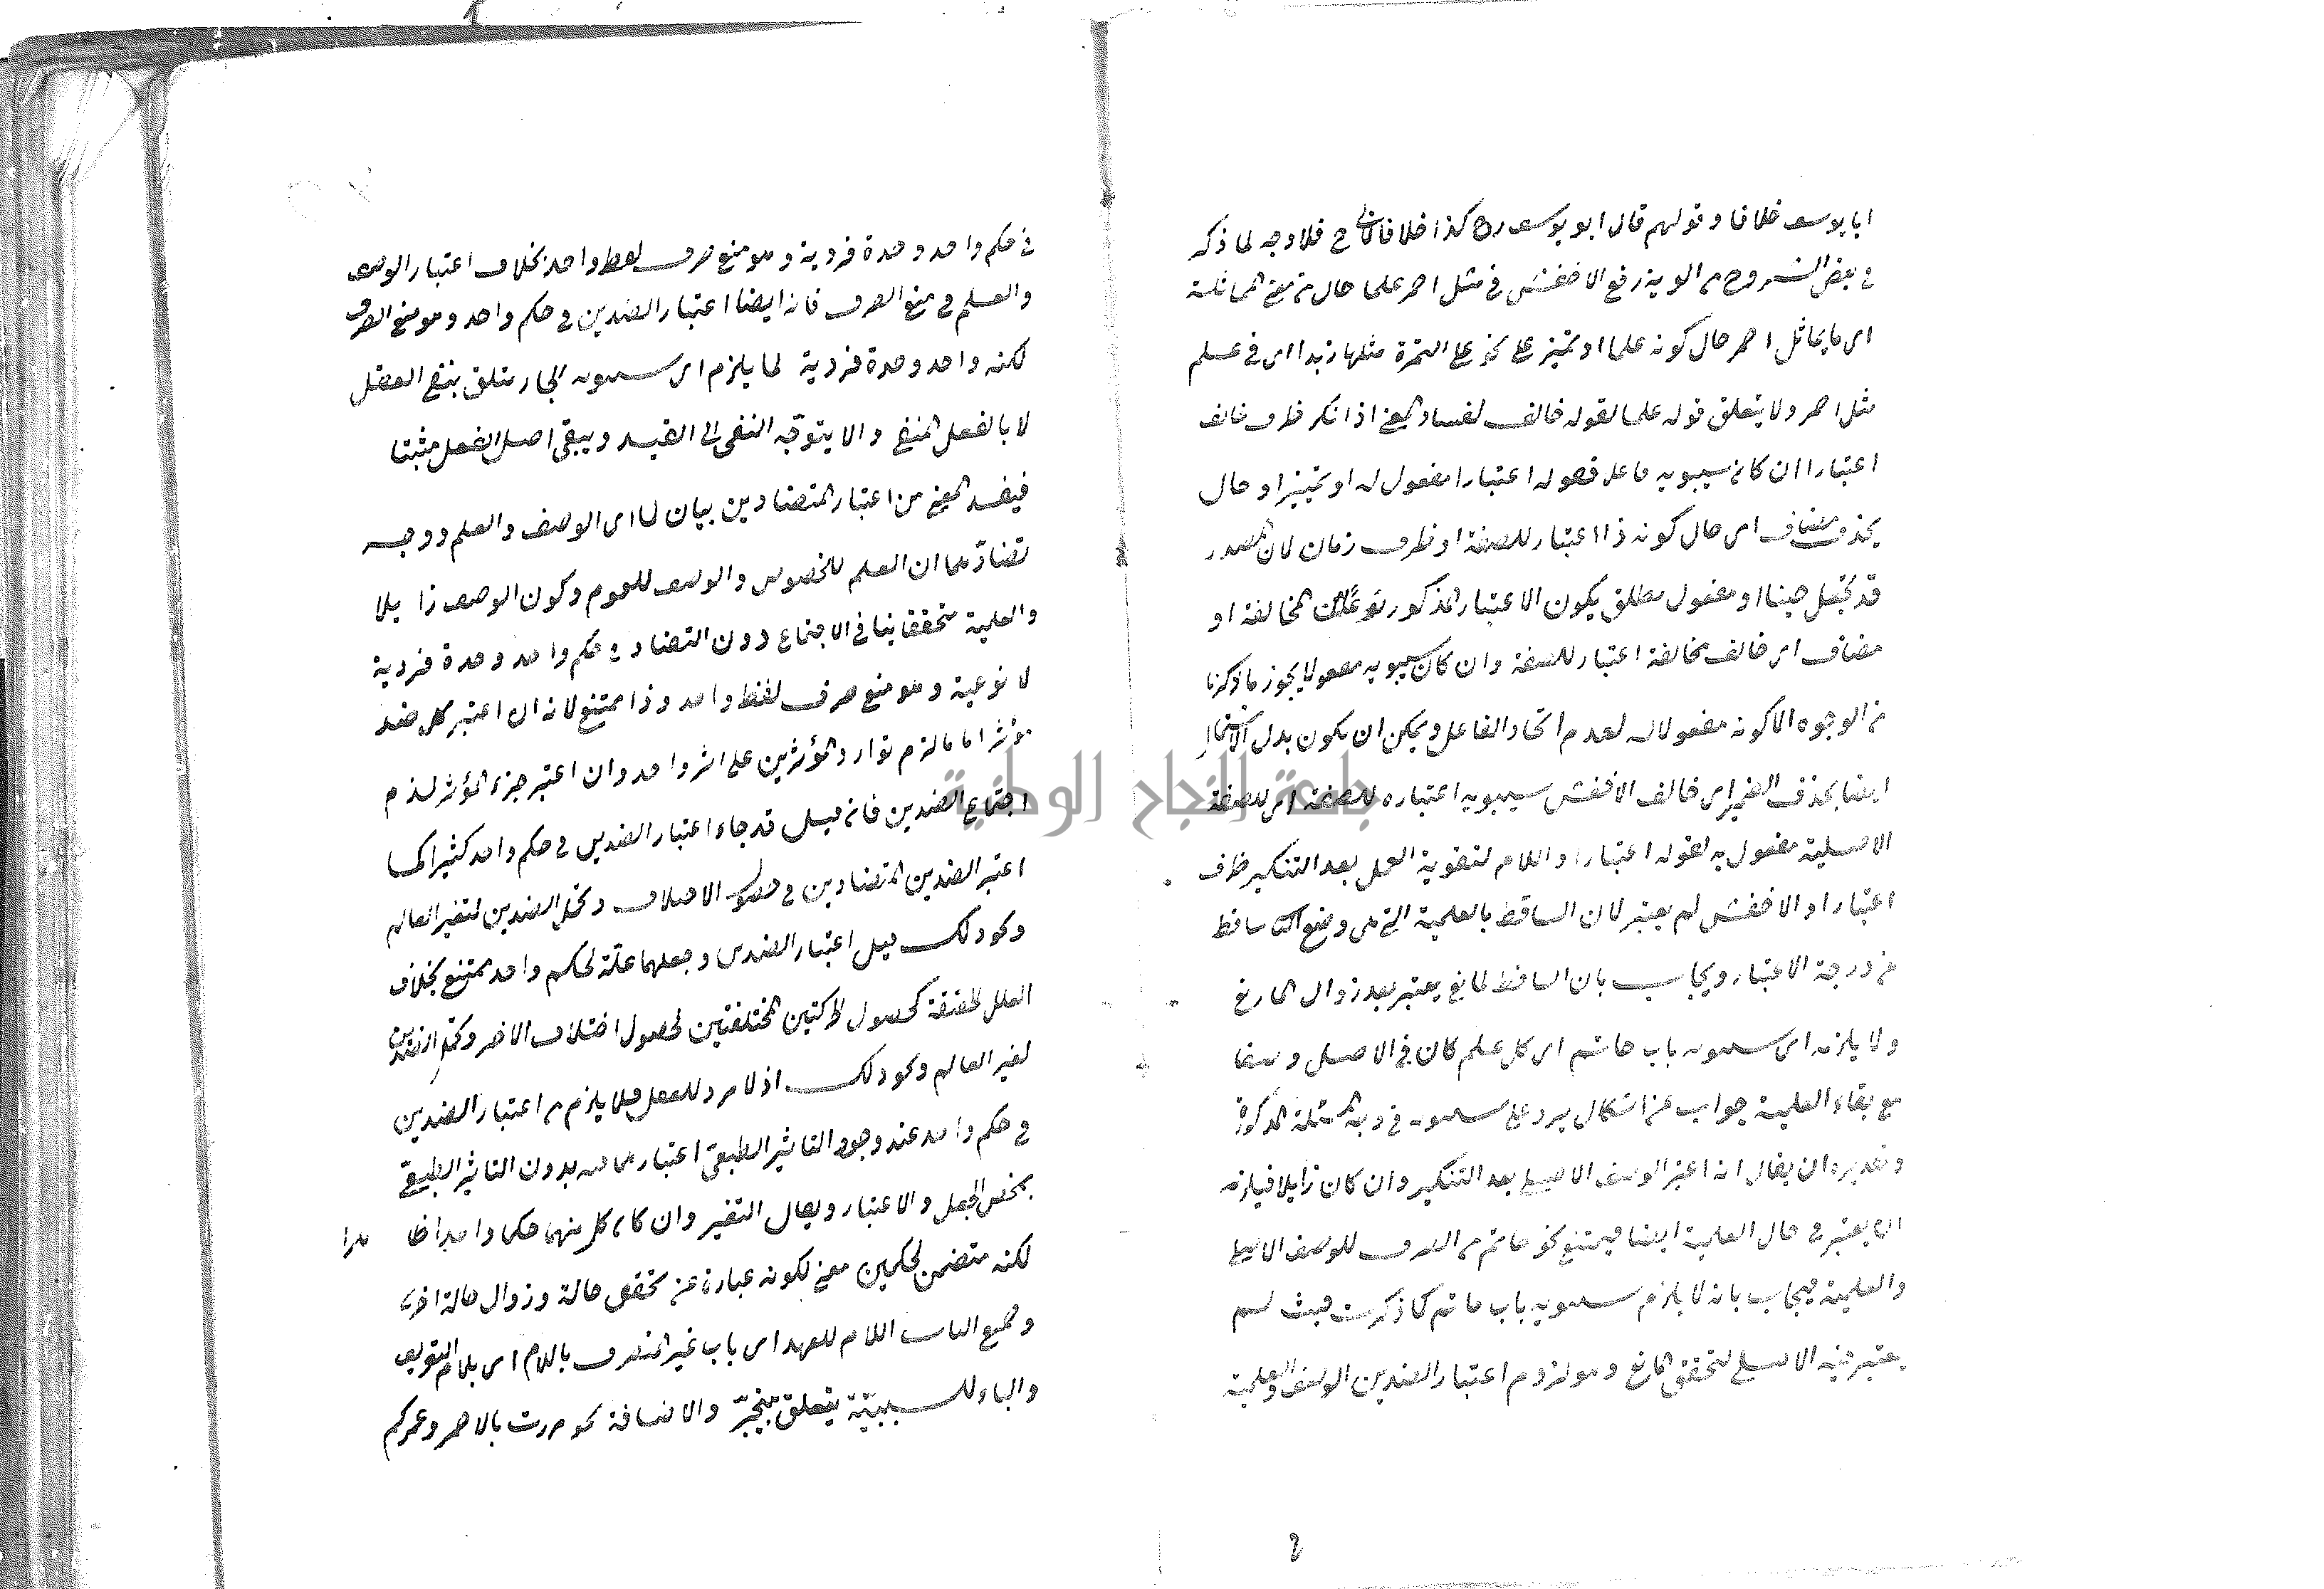 ابا يوسف خلافا وقولهم قال ابو يوسف رح كذا خلافا فلاوجه لما ذكره
في بعض الشروح من الوية رفع الاخفش في مثل احمر علما حال من معنى المماثلة
اى ما يماثل احمر حال كونه علما او تميز على نحو على التمرة مثلها زبدا اى في علم
مثل احمر ولا يتعلق قوله علما لقوله خالف لفساد المعنى اذا نكر ظرف خالف
اعتبارا ان كان سيبويه فاعلا فقوله اعتبارا مفعول له او تمييز او حال
بحذف مضاف اى حال كونه ذا اعتبار للصفة او ظرف زمان لان المصدر
قد يجعل حينا او مفعول مطلق يكون الاعتبار المذكور المخالفة او
مضاف اى خالف مخالفة اعتبار للصفة وان كان سيبويه مفعولا يجوز ما ذكرنا
من الوجوه الا كونه مفعولا له لعدم اتحاد الفاعل ويمكن ان يكون بدل الاشتمال
ايضا بحذف الضمير اى خالف الاخفش سيبويه اعتباره للصفة اى للصفة
الاصلية مفعول به لقوله اعتبارا واللام لتقوية العمل بعد التنكير ظرف
اعتبارا والاخفش لم يعتبر لان الساقط بالعلمية التي هى وضع ساقط
عن درجة الاعتبار ويجاب بان الساقط لمانع يعتبر بعد زوال المانع
ولا يلزمه اى سيبويه باب حاتم اى كل علم كان في الاصل وصفا
مع بقاء العلمية جواب عن اشكال يرد على سيبويه في المذكورة
وتقديره ان يقال انه اعتبر الوصف الاصلي بعد التنكير وان كان زايلا فيلزمه
ان يعتبر في حال العلمية ايضا فيمتنع نحو حاتم من الصرف للوصف الاصلي
والعلمية فيجاب بانه لا يلزم سيبويه باب حاتم كما ذكرت حيث لم
يعتبر فيه الاصلي لتحقق المانع وهو لزوم اعتبار الضدين الوصف والعلمية
في حكم واحد وحدة فردية وهو منع صرف لفظ واحد بخلاف اعتبار الوصف
والعلم في منع الصرف فانه ايضا اعتبار الضدين في حكم واحد وهو منع الصرف
لكنه واحد وحدة فردية لما يلزم اى سيبويه الجار متعلق بنفى الفعل
لا بالفعل المنفى والا يتوجّه النفى الى القيد ويبقى اصل الفعل مثبتا
فيفسد المعنى من اعتبار المتضادين بيان لما اى الوصف والعلم ووجه
تضادّهما ان العلم للخصوص والوصف للعموم وكون الوصف زايلا
والعلمية متحققا ينافي الاجتماع دون التضاد في حكم واحد وحدة فردية
لا نوعية وهو منع صرف لفظ واحد وذا ممتنع لانه ان اعتبر كل ضد
مؤثرا تاما لزم توارد المؤثرين على اثر واحد وان اعتبر جزء المؤثر لزم
اجتماع الضدين فان قيل قد جاء اعتبار الضدين في حكم واحد كثيرا كما
اعتبر الضدين المتضادين في حصول الاختلاف وتخلل الضدين لتغير العالم
ونحو ذلك قيل اعتبار الضدين وجعلهما علّة لحكم واحد ممتنع بخلاف
العلل الحقيقة كحصول الحركتين المختلفتين لحصول اختلاف الاخر وتخلل الضدين
لغير العالم ونحو ذلك اذ لا مرد للعقل فلا يلزم من اعتبار الضدين
في حكم واحد عند وجود التاثير الطبعيّ اعتبار بدون التاثير الطبيعيّ
بمحض الجعل والاعتبار ويقال التغير وان كان كل منهما حكما واحدا
لكنه متضمن لحكمين معنى لكونه عبارة عن تحقق حالة وزوال حالة اخرى
وجميع الباب اللام للعهد اى باب غير المنصرف باللام اى بلام التعريف
والباء للسببيّة يتعلق بينجرّ والاضافة نحو مررت بالاحمر وعمركم